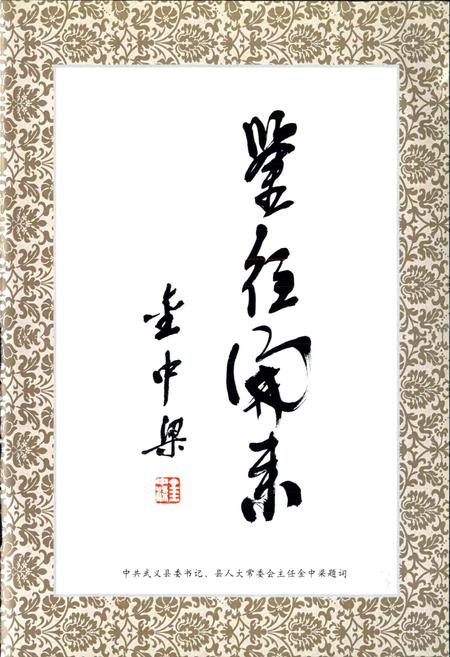 鉴往开来
金中梁
中共武义县委书记、县人大常委会主任金中梁题词